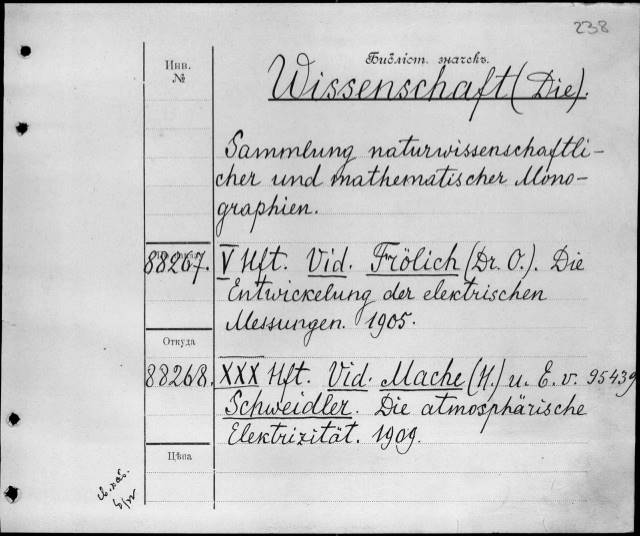 238
Инв.
№
Библіот. значекъ.
Wissenschaft (Die).
Sammlung naturwissenschaftli-
cher und mathematischer Mono-
graphien.
88267. V Hft. Vid. Frölich (Dr. O.). Die
Entwickelung der elektrischen
Messungen. 1905.
Откуда
88268. XXX Hft. Vid. Mache (H.) u. E. v. 95439
Schweidler. Die atmosphärische
Elektrizität. 1909.
Цѣна